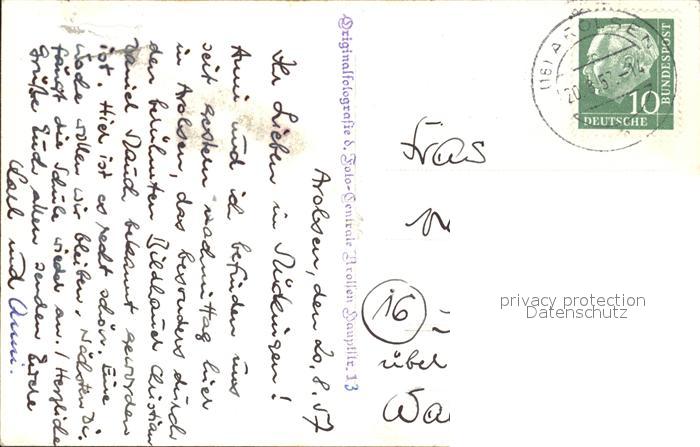 Arolsen, den 20.8.57
Ihr Lieben in
Anni und ich befinden uns
seit gestern nachmittag hier
in Arolsen, das besonders durch
den berühmten Bildhauer Christian
Daniel Rauch bekannt geworden
ist. Hier ist es recht schön. Eine
Woche wollen wir bleiben. Nächsten Di.
fängt die Schule wieder an. Herzliche
Grüße Euch allen senden Eure
und Anni.
Originalfotografie d. Foto-Centrale Arolsen Hauptstr. 13
(16) AROLSEN
20.8.57
10
DEUTSCHE
BUNDESPOST
Frau
16
über
Wa
privacy protection
Datenschutz